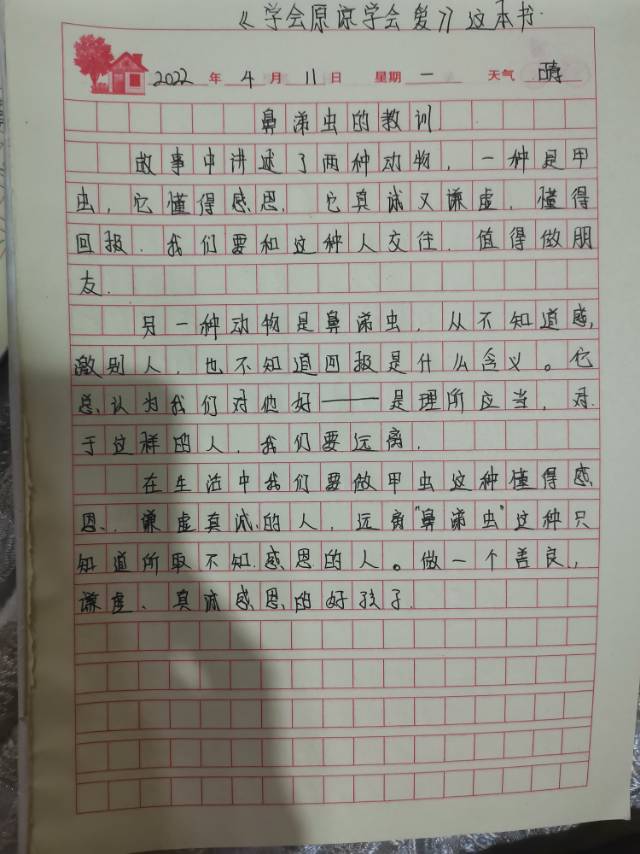 《学会原谅学会爱》这本书.
2022 年 4 月 11 日 星期 一 天气 晴
鼻涕虫的教训
故事中讲述了两种动物，一种是甲
虫，它懂得感恩，它真诚又谦虚，懂得
回报．我们要和这种人交往．值得做朋
友．
另一种动物是鼻涕虫，从不知道感
激别人，也不知道回报是什么含义。它
总认为我们对他好——是理所应当，对
于这样的人．我们要远离．
在生活中我们要做甲虫这种懂得感
恩、谦虚真诚的人，远离"鼻涕虫"这种只
知道所取不知感恩的人。做一个善良，
谦虚、真诚感恩的好孩子．